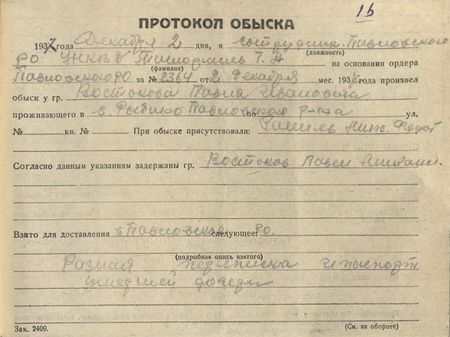 16
ПРОТОКОЛ ОБЫСКА
1937 года Декабря 2 дня, я сотрудник Павловского
(должность)
РО УНКВД на основании ордера
(фамилия)
Павловского РО за № 2364 от 2 декабря мес. 193 г. произвел
обыск у гр. Востокова Павла Ивановича
проживающего в с. Павловского р-на по ул.
№ кв. № При обыске присутствовали:
Согласно данным указаниям задержаны гр. Востоков Павел
Взято для доставления в Павловское следующее: РО
(подробная опись взятого)
Разная переписка и паспорт
Зак. 2409. (См. на обороте)